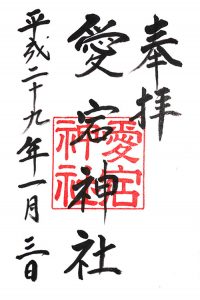 奉拝
愛宕神社
愛宕神社
平成二十九年一月三日